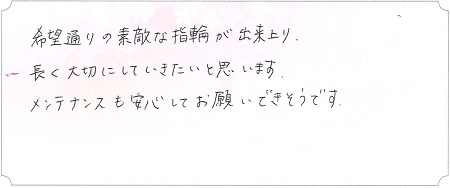 希望通りの素敵な指輪が出来上り.
長く大切にしていきたいと思います.
メンテナンスも安心してお願いできそうです.